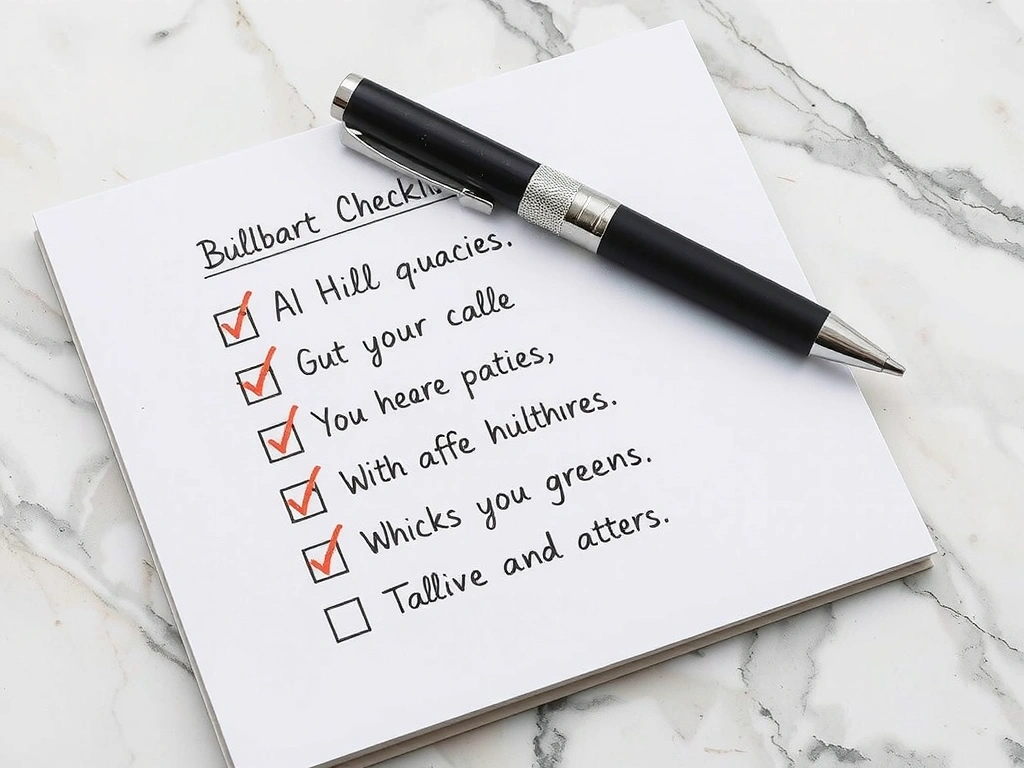 Bullbart Checkli
Al Hill q.uacies.
Gut your calle
You heere paties,
With affe hulthires.
Whicks you greens.
Tallive and atters.